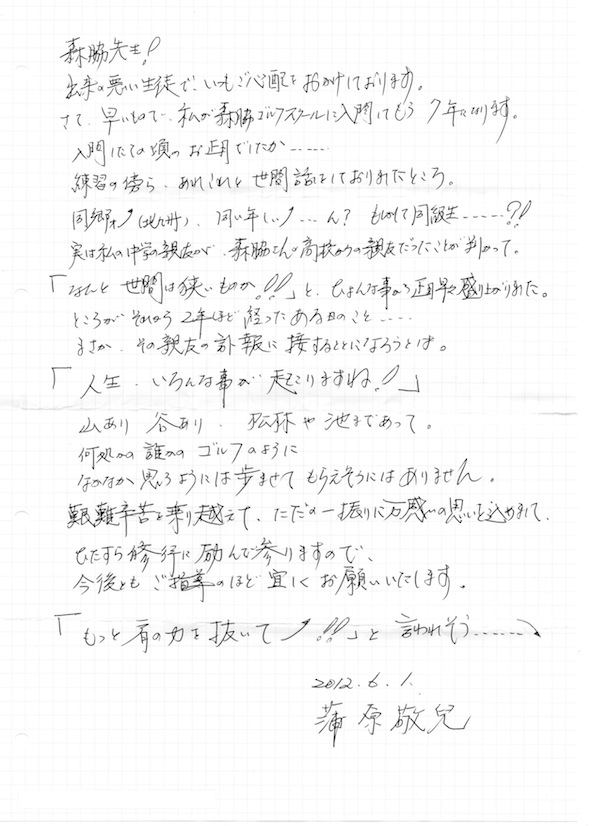 森脇先生!
出来の悪い生徒で、いつもご心配をおかけしております。
さて、早いもので、私が森脇ゴルフスクールに入門してもう7年になります。
入門したての頃のお正月でしたか……
練習の傍ら、あれこれと世間話をしておりましたところ。
同郷(北九州)、同い年…ん? もしかして同級生……?!
実は私の中学の親友が、森脇さんの高校からの親友だったことが判かって。
「なんと世間は狭いものか!!」と、ひょんな事から正月早々盛り上がりました。
ところがそれから2年ほど経ったある日のこと……
まさか、その親友の訃報に接することになろうとは。
「人生、いろんな事が起こりますね!」
山あり谷あり、松林や池まであって。
何処かの誰かのゴルフのように
なかなか思うようには歩ませてもらえそうにはありません。
艱難辛苦を乗り越えて、ただの一振りに万感の思いを込めまして、
ひたすら修行に励んで参りますので、
今後ともご指導のほど宜しくお願いいたします。
「もっと肩の力を抜いて!!」と言われそう……
2012.6.1.
蒲原敬兒